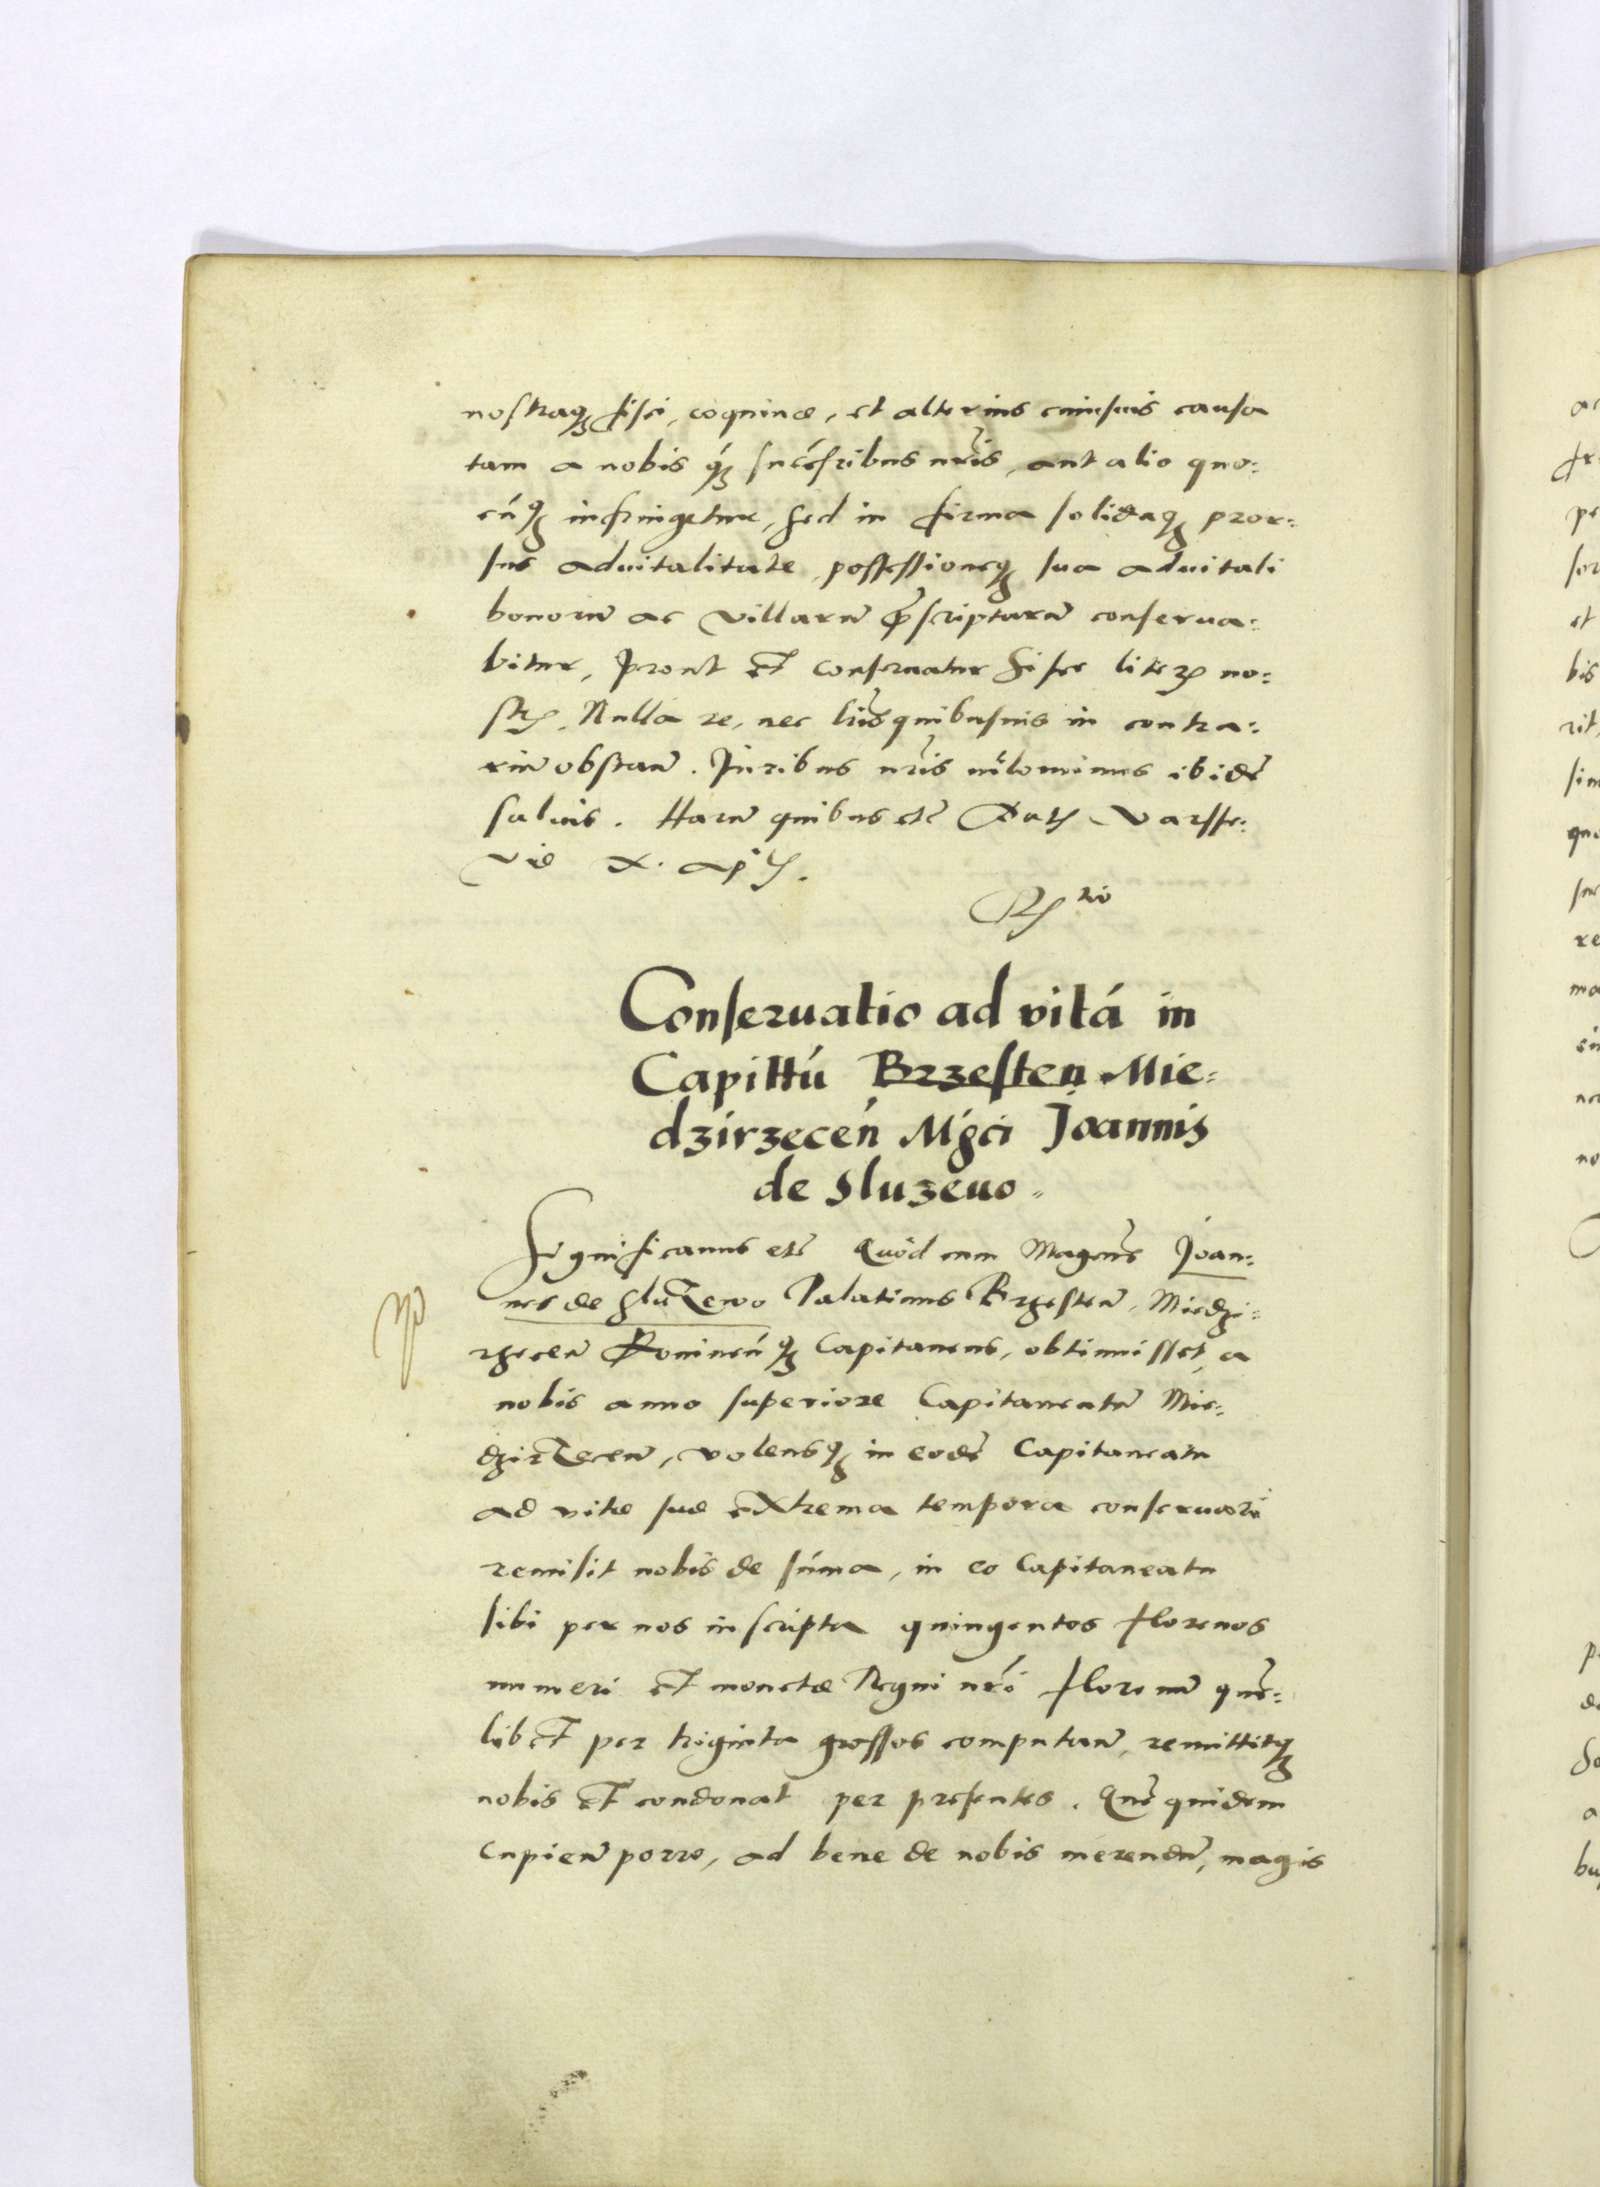 nostraqʒ fisci, coquinæ, et alterius cuiusuis causa
tam a nobis qʒ́ succ̃sribus nr̃is, aut alio quo:
cũqʒ infringetur, sed in firma solidaqʒ pror:
sus aduitalitate, possessioneqʒ sua aduitali
bonorũ ac villarũ p̃scriptarũ conserua:
bitur, prout et conseruatur hisce literꝝ no:
strꝝ. Nulla re, nec lr̃is quibusuis in contra:
riũ obstañ. Juribus nr̃is nil̃ominus ibidẽ
saluis. Harũ quibus etc̃ Datꝭ Varsse:
viæ X. apꝭ.
Rꝭ tio
Conseruatio ad vitá in
Capittú Brzesten Mie:
dzirzecen̕ Mǵci Joannis
de Sluzeuo.
Significamus etc̃ Quod cum Magcũs Joan:
nes de Sluzewo Palatinus Brzesteñ, Miedzi:
rzeceñ Coninen̕qʒ Capitaneus, obtinuisset a
nobis anno superiore Capitaneatũ Mie:
dzirzeceñ, volensqʒ in eodẽ Capitaneatu
ad vitæ suæ extrema tempora conseruari
remisit nobis de sũma, in eo Capitaneatu
sibi per nos inscripta quingentos florenos
numeri et monetæ Regni nr̃i florenũ quẽ:
libet per triginta grossos computañ, remittitqʒ
nobis et condonat per presentes. Quẽ quidem
cupieñ porro, ad bene de nobis merendũ, magis